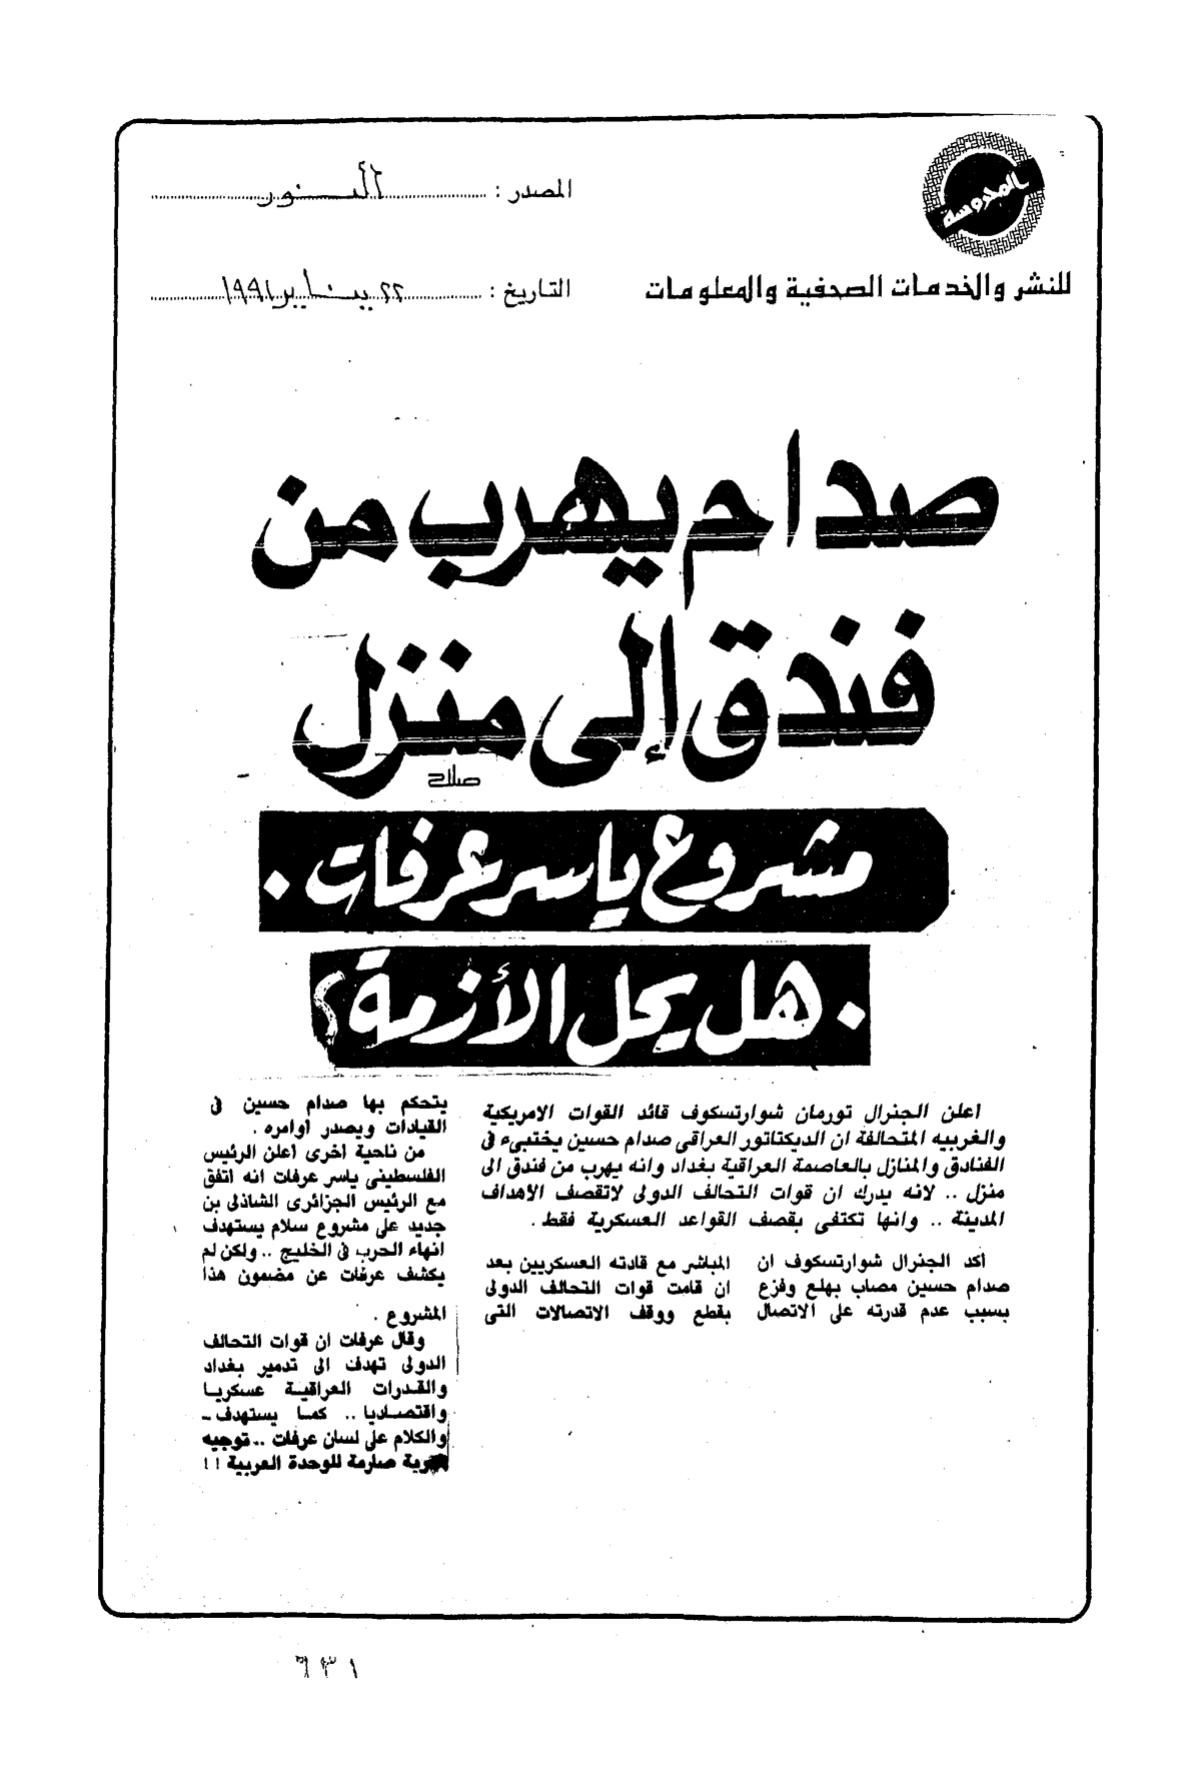 المحروسة
للنشر والخدمات الصحفية والمعلومات
المصدر : النور
التاريخ : ٢٢ يناير ١٩٩١
صدام يهرب من
فندق إلى منزل
صلاح
مشروع ياسر عرفات .
. هل يحل الأزمة ؟
اعلن الجنرال تورمان شوارتسكوف قائد القوات الامريكية
والغربيه المتحالفة ان الديكتاتور العراقى صدام حسين يختبىء فى
الفنادق والمنازل بالعاصمة العراقية بغداد وانه يهرب من فندق الى
منزل .. لانه يدرك ان قوات التحالف الدولى لاتقصف الاهداف
المدينة .. وانها تكتفى بقصف القواعد العسكرية فقط .
اكد الجنرال شوارتسكوف ان
صدام حسين مصاب بهلع وفزع
بسبب عدم قدرته على الاتصال
المباشر مع قادته العسكريين بعد
ان قامت قوات التحالف الدولى
بقطع ووقف الاتصالات التى
يتحكم بها صدام حسين فى
القيادات ويصدر اوامره .
من ناحية اخرى اعلن الرئيس
الفلسطينى ياسر عرفات انه اتفق
مع الرئيس الجزائرى الشاذلى بن
جديد على مشروع سلام يستهدف
انهاء الحرب فى الخليج .. ولكن لم
يكشف عرفات عن مضمون هذا
المشروع .
وقال عرفات ان قوات التحالف
الدولى تهدف الى تدمير بغداد
والقدرات العراقية عسكريا
واقتصاديا .. كما يستهدف ـ
والكلام على لسان عرفات .. توجيه
صارمة للوحدة العربية !!
٦٣١